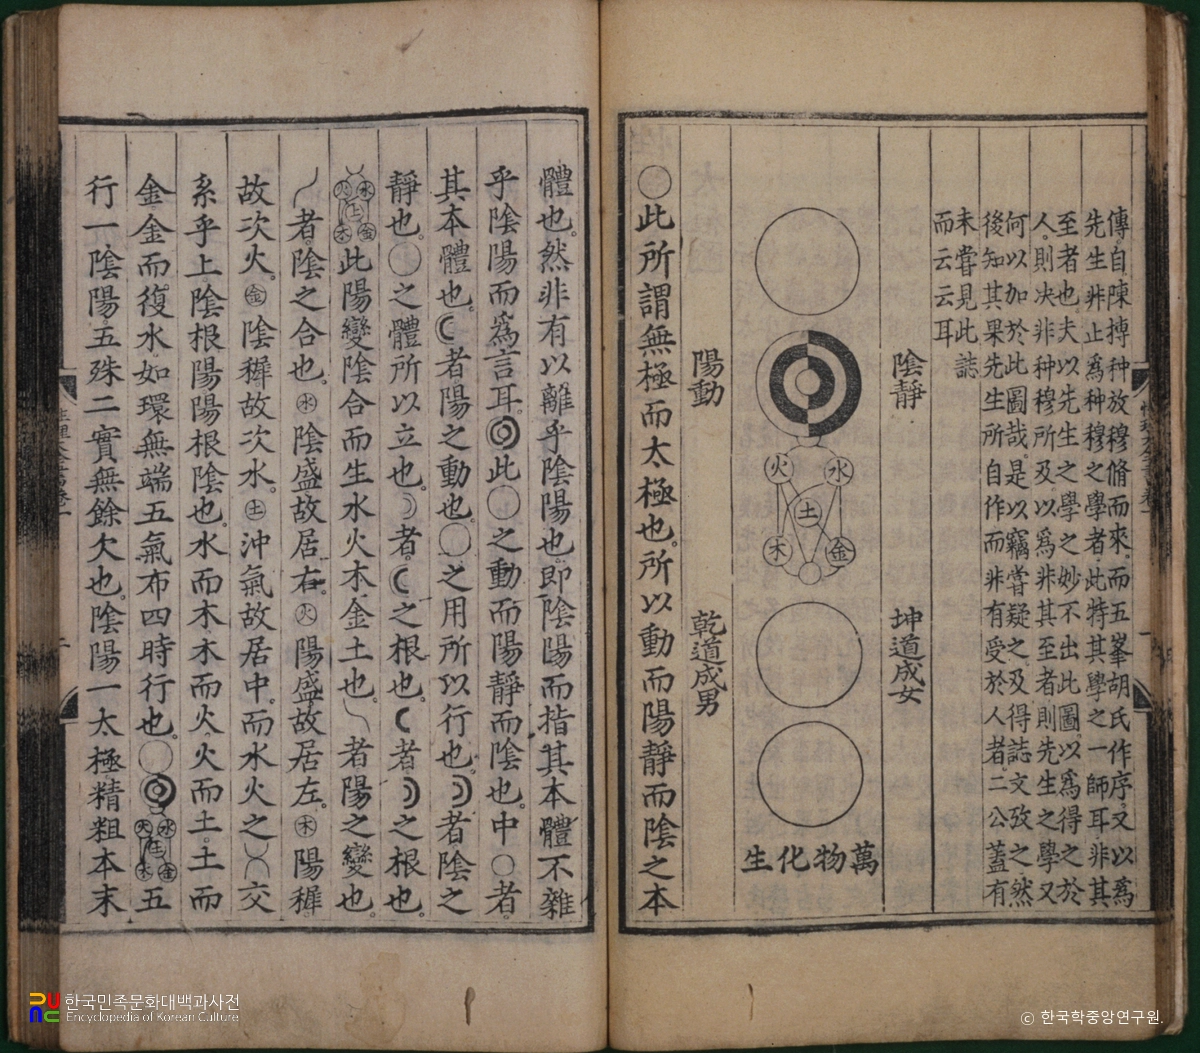 傳自陳摶种放穆脩而來而五峯胡氏作序又以爲
先生非止爲种穆之學者此特其學之一師耳非其
至者也夫以先生之學之妙不出此圖以爲得之於
人則决非种穆所及以爲非其至者則先生之學又
何以加於此圖哉是以竊嘗疑之及得誌文攷之然
後知其果先生所自作而非有受於人者二公蓋有
未嘗見此誌
而云云耳
陰靜
坤道成女
火
水
土
木
金
萬物化生
陽動
乾道成男
○此所謂無極而太極也所以動而陽靜而陰之本
體也然非有以離乎陰陽也即陰陽而指其本體不雜
乎陰陽而爲言耳此○之動而陽靜而陰也中○者
其本體也☾者陽之動也○之用所以行也☽者陰之
靜也○之體所以立也☽者☾之根也☾者☽之根也
水火土木金此陽變陰合而生水火木金土也㇏者陽之變也
㇏者陰之合也水陰盛故居右火陽盛故居左木陽穉
故次火金陰穉故次水土沖氣故居中而水火之交
系乎上陰根陽陽根陰也水而木木而火火而土土而
金金而復水如環無端五氣布四時行也○水火土木金五
行一陰陽五殊二實無餘欠也陰陽一太極精粗本末
한국민족문화대백과사전
Encyclopedia of Korean Culture
ⓒ 한국학중앙연구원.